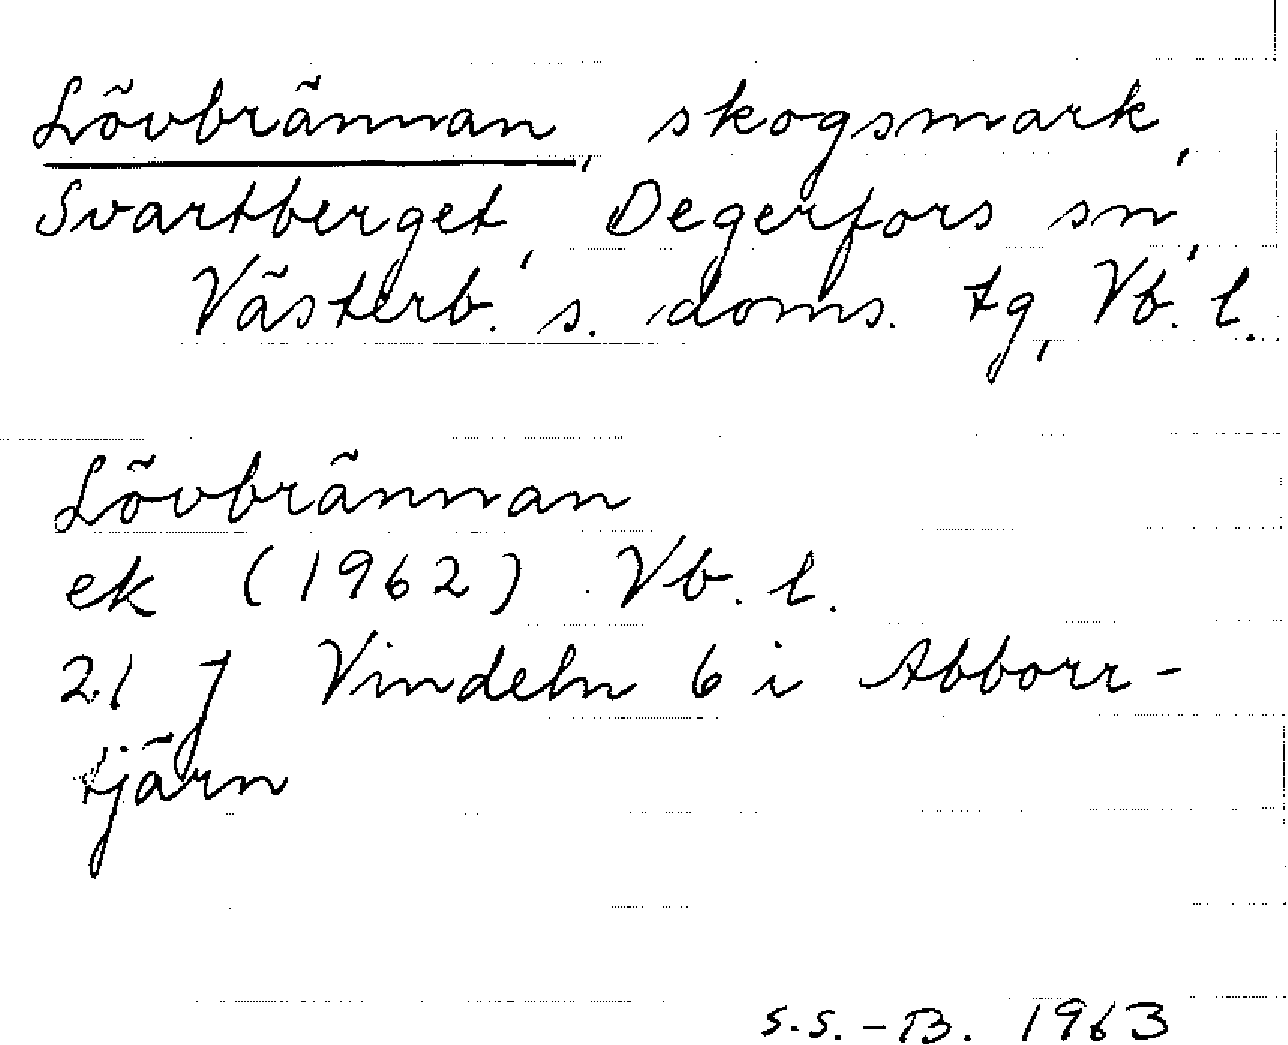 Lövbrännan, skogsmark,
Svartberget, Degerfors sn,
Västerb. s. doms. tg, Vb. l.
Lövbrännan
ek (1962) Vb. l.
21 J Vindeln 6 i Abborr-
tjärn
S.S.-B. 1963